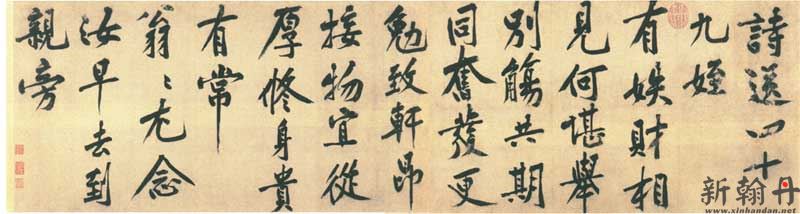 詩送四十
九姪
有娛財相
見何堪舉
別觴共期
同奮發更
勉致軒昂
接物宜從
厚修身貴
有常
翁〻尤念
汝早去到
親旁
新翰丹
www.xinhandan.net